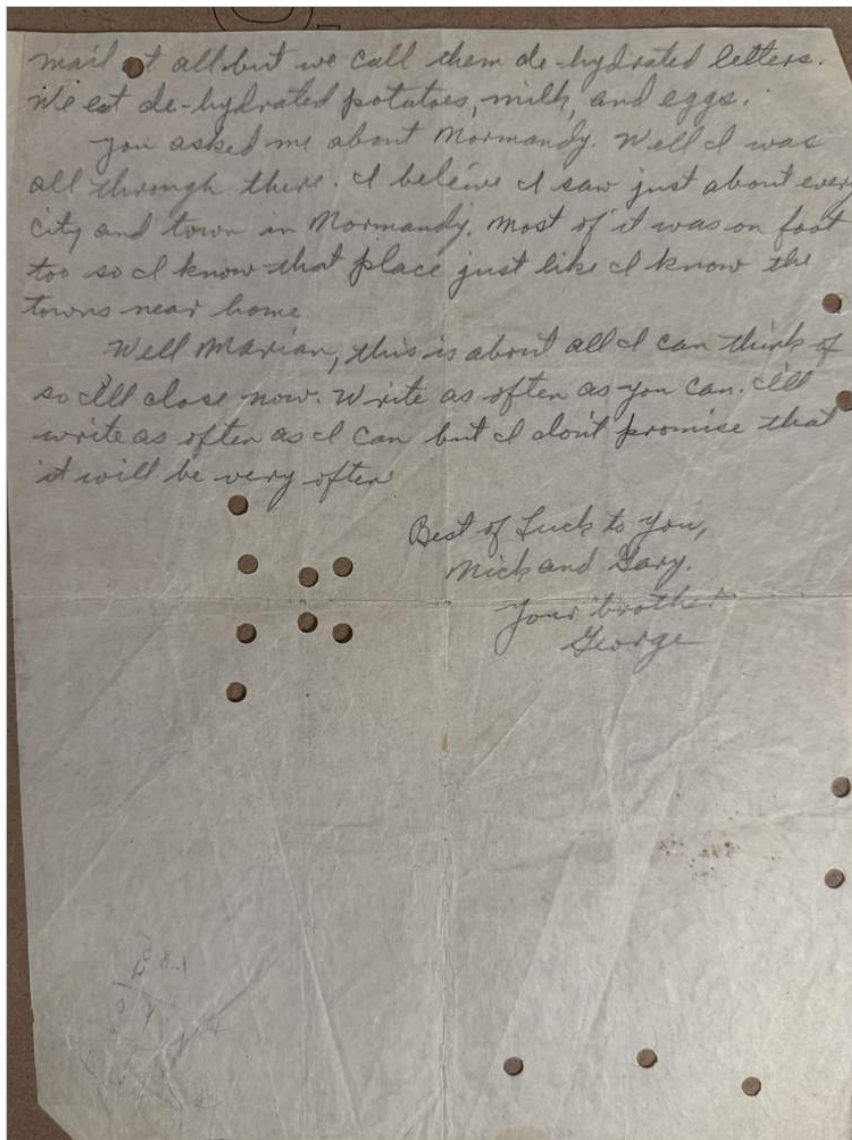 mail at all but we call them de-hydrated letters.
We eat de-hydrated potatoes, milk, and eggs.
You asked me about Normandy. Well I was
all through there. I beleive I saw just about every
city and town in Normandy. Most of it was on foot
too so I know that place just like I know the
towns near home.
Well Marian, this is about all I can think of
so I'll close now. Write as often as you can. I'll
write as often as I can but I don't promise that
it will be very often
Best of Luck to You,
Nick and Gary.
Your brother
George